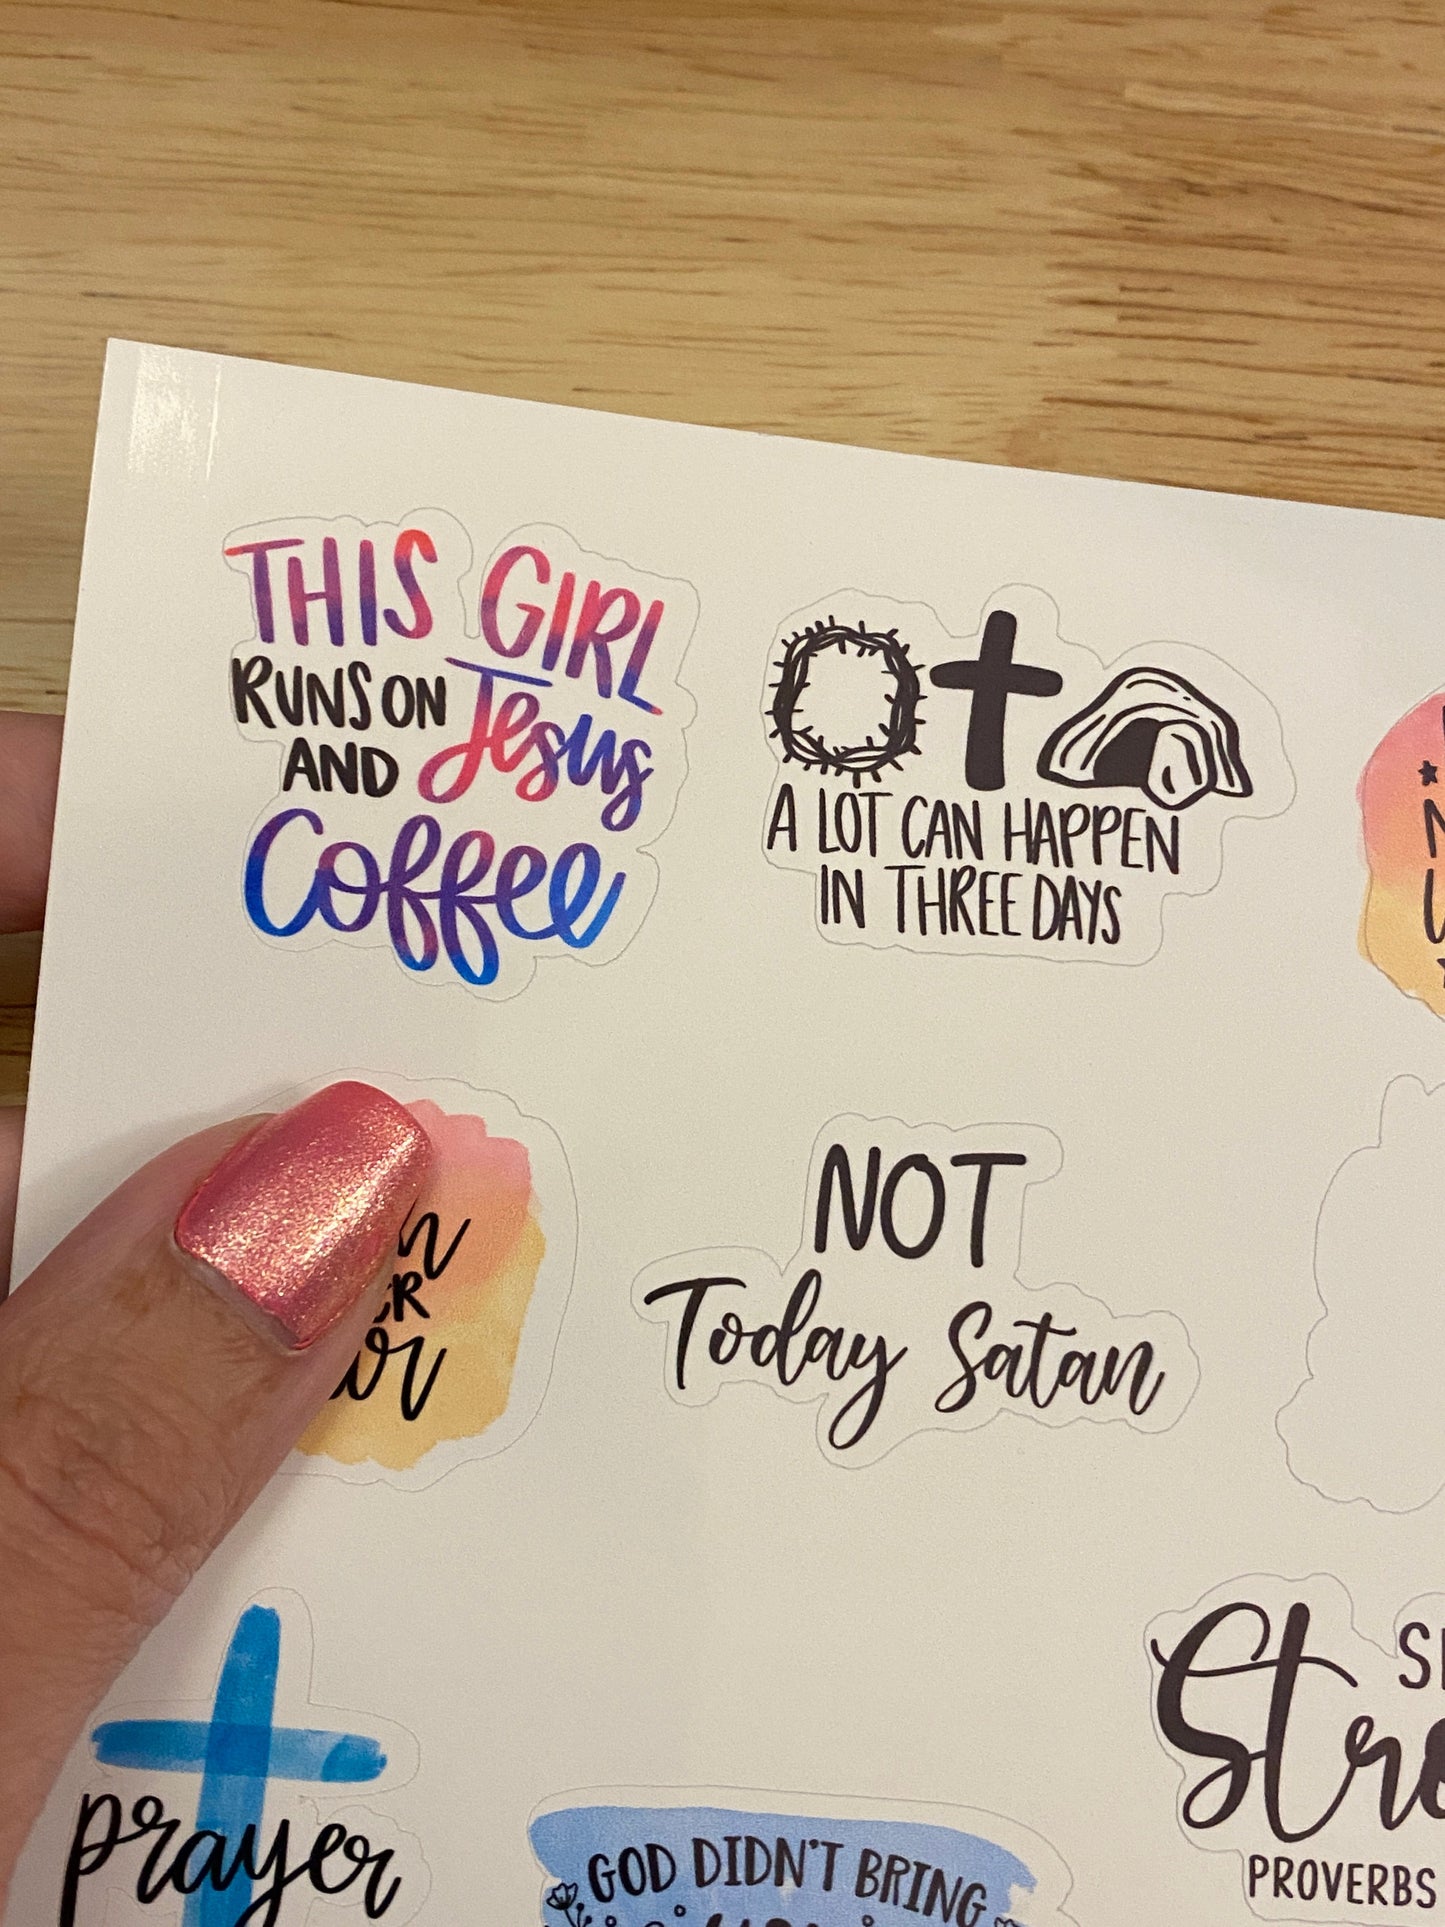 THIS GIRL
RUNS ON Jesus
AND
Coffee
A LOT CAN HAPPEN
IN THREE DAYS
NOT
Today Satan
prayer
GOD DIDN'T BRING
PROVERBS